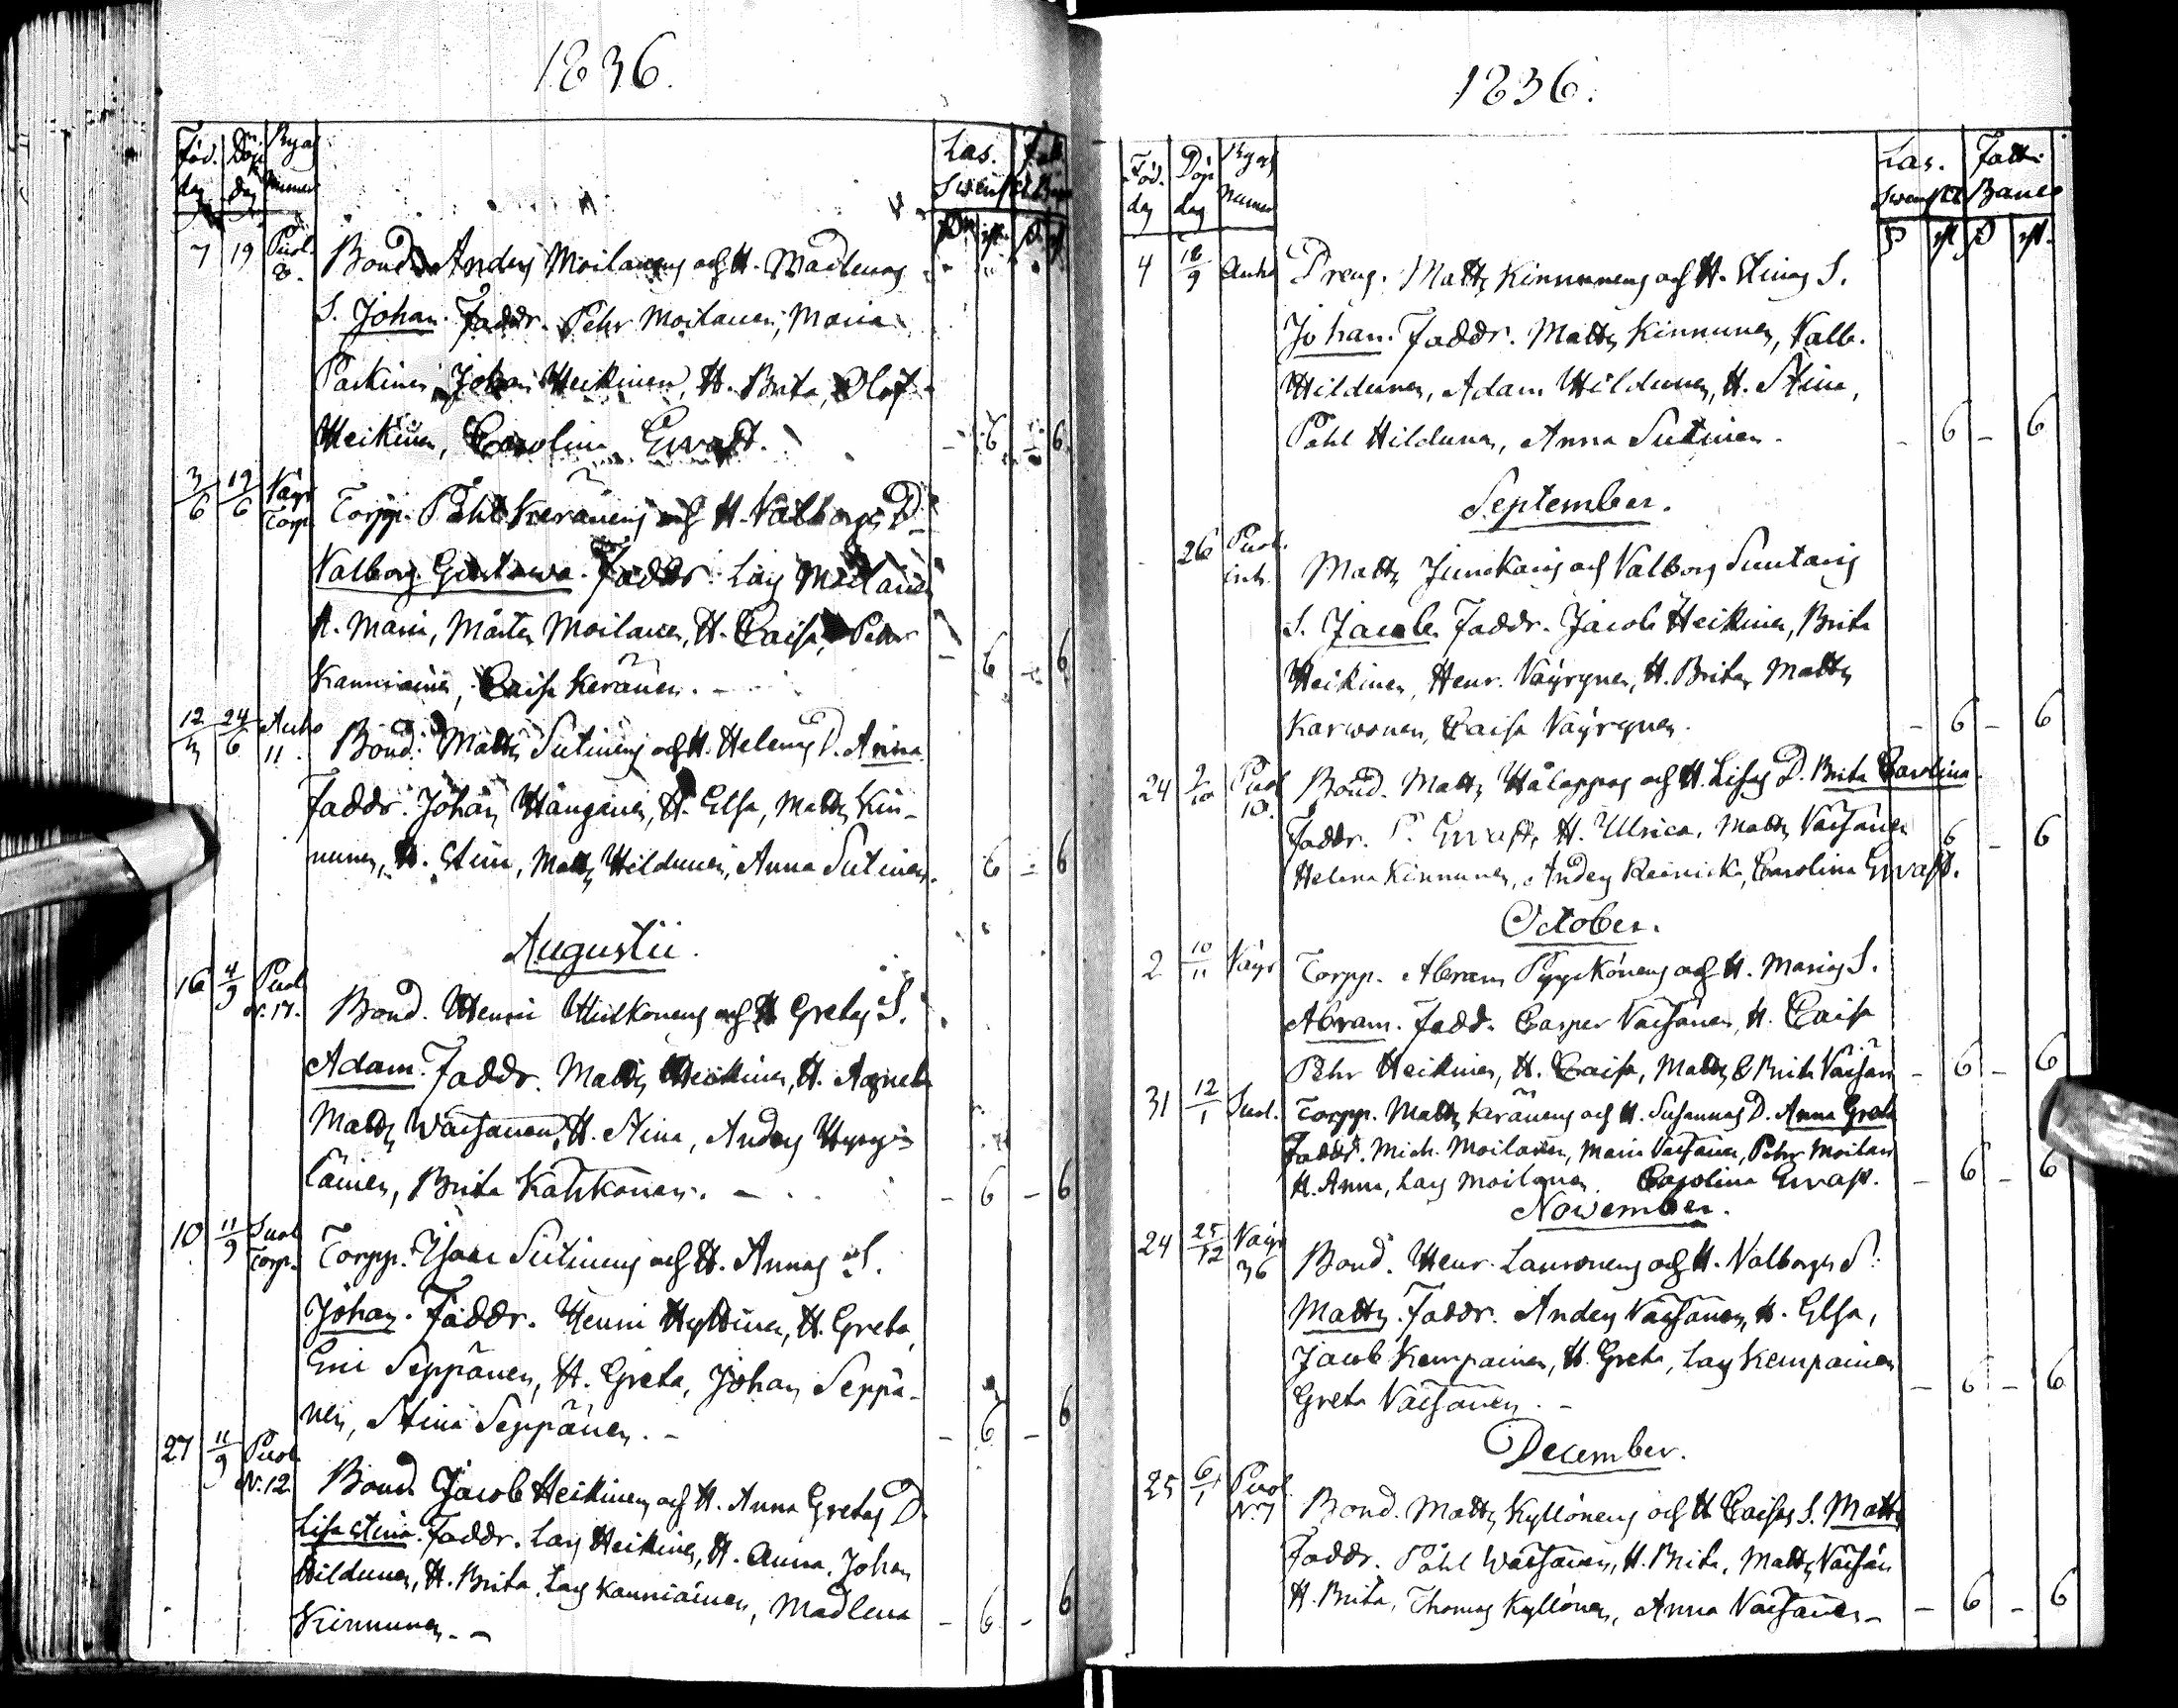 1836.
Föd. dag Döp. dag Byas Numer Las. Swensk
7 19 Puol. Bond. Anders Moilanens och H. Madlenas
S. Johan. Faddr. Pehr Moilanen, Maria
Johan Heikinen, H. Brita, Olof
Heikinen, Carolina Ervast. - 6 - 6
3/6 19/6 Väyr Torp. Torpp. Påhl Keränens och H. Valborgs D.
Valborg Gustawa. Faddr. Lars Moilanen
H. Maria, Mårten Moilanen, H. Caisa, Pehr
Kanniainen, Caisa Keränen. - 6 - 6
12 24/6 Auho 11. Bond. Matts Sutinens och H. Helenas D. Anna
Faddr. Johan H. Elsa, Matts Kin-
nunen, H. Stina, Matts Hildunen, Anna Sutinen. 6 - 6
Augustii.
16 4/9 Puol. N. 17. Bond. Henric Huskonens och H. Gretas S.
Adam. Faddr. Matts Heikinen, H. Agneta
Matts Väisänen, H. Stina, Anders Hyry-
läinen, Brita Kähkönen. - 6 - 6
10 11/9 Suol. Torp. Torpp. Isaac Sutinens och H. Annas S.
Johan. Faddr. Henric Hyttinen, H. Greta,
Eric Seppänen, H. Greta, Johan Seppä-
nen, Stina Seppänen. - 6 - 6
27 11/9 Puol. N. 12. Bond. Jacob Heikinens och H. Anna Gretas D.
Lisa Stina. Faddr. Lars Heikinen, H. Anna, Johan
Hildunen, H. Brita, Lars Kanniainen, Madlena
Kinnunen. - 6 - 6
1836.
Föd. dag Döp dag Byas Numer Las. Swensk Fatti. Banco
4 18/9 Auho Dreng. Matts Kinnunens och H. Stinas S.
Johan. Faddr. Matts Kinnunen, Valb.
Hildunen, Adam Hildunen, H. Stina,
Påhl Hildunen, Anna Sutinen. - 6 - 6
September.
26 Puol. inh. Matts Junckaris och Valborg Suutaris
S. Jacob. Faddr. Jacob Heikinen, Brita
Heikinen, Henr. Väyrynen, H. Brita, Matts
Karwonen, Caisa Väyrynen. - 6 - 6
24 2/10 Puol 10. Bond. Matts Hålappas och H. Lisas D. Brita Carolina.
Faddr. P. Ervast, H. Ulrica, Matts Väisänen 6 - 6
Helena Kinnunen, Anders Reinicka, Carolina Ervast.
October.
2 10/11 Väyr Torpp. Abram Pyykönens och H. Marias S.
Abram. Fadd. Casper Väisänen, H. Caisa
Pehr Heikinen, H. Caisa, Matts & Brita Väisän - 6 - 6
31 12/1 Suol. Torpp. Matts Keränens och H. Susannas D. Anna Greta
Faddr. Mich. Moilanen, Maria Väisänen, Pehr Moilan
H. Anna, Lars Moilanen. Carolina Ervast. - 6 - 6
November.
24 25/12 Väyr 36 Bond. Henr. Lauronens och H. Valborgs S.
Matts. Faddr. Anders Väisänen, H. Elsa,
Jacob Kempainen, H. Greta, Lars Kempainen
Greta Väisänen. - 6 - 6
December.
25 6/1 Puol N. 7 Bond. Matts Kyllönens och H. Caisas S. Matts
Faddr. Påhl Wäisänen, H. Brita, Matts Väisän
H. Brita, Thomas Kyllönen, Anna Väisänen - 6 - 6